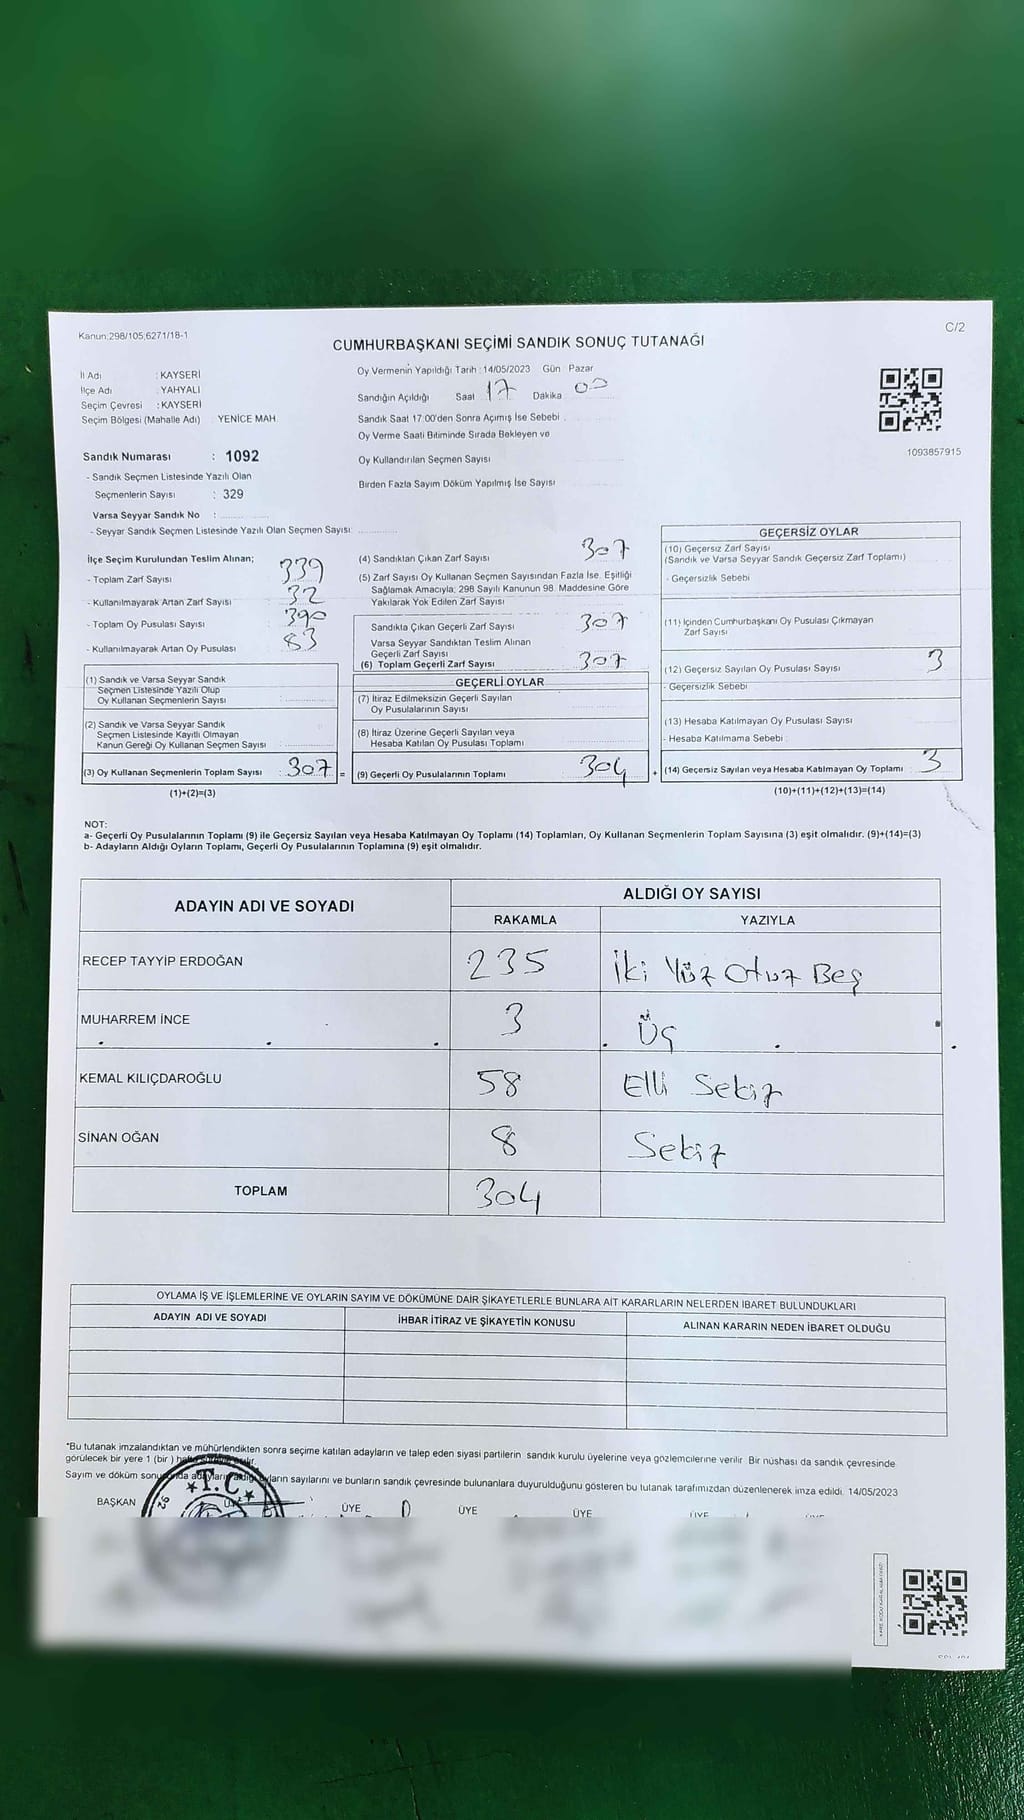 Kanun:298/105;6271/18-1
C/2
CUMHURBAŞKANI SEÇİMİ SANDIK SONUÇ TUTANAĞI
İl Adı : KAYSERİ
İlçe Adı : YAHYALI
Seçim Çevresi : KAYSERİ
Seçim Bölgesi (Mahalle Adı) : YENİCE MAH.
Sandık Numarası : 1092
- Sandık Seçmen Listesinde Yazılı Olan
Seçmenlerin Sayısı : 329
Varsa Seyyar Sandık No :
- Seyyar Sandık Seçmen Listesinde Yazılı Olan Seçmen Sayısı:
Oy Vermenin Yapıldığı Tarih : 14/05/2023 Gün Pazar
Sandığın Açıldığı Saat 17 Dakika 00
Sandık Saat 17:00'den Sonra Açımış İse Sebebi
Oy Verme Saati Bitiminde Sırada Bekleyen ve
Oy Kullandırılan Seçmen Sayısı
Birden Fazla Sayım Döküm Yapılmış İse Sayısı
1093857915
İlçe Seçim Kurulundan Teslim Alınan;
- Toplam Zarf Sayısı 339
- Kullanılmayarak Artan Zarf Sayısı 32
- Toplam Oy Pusulası Sayısı 390
- Kullanılmayarak Artan Oy Pusulası 83
(1) Sandık ve Varsa Seyyar Sandık
Seçmen Listesinde Yazılı Olup
Oy Kullanan Seçmenlerin Sayısı
(2) Sandık ve Varsa Seyyar Sandık
Seçmen Listesinde Kayıtlı Olmayan
Kanun Gereği Oy Kullanan Seçmen Sayısı
(3) Oy Kullanan Seçmenlerin Toplam Sayısı : 307 =
(1)+(2)=(3)
(4) Sandıktan Çıkan Zarf Sayısı 307
(5) Zarf Sayısı Oy Kullanan Seçmen Sayısından Fazla İse. Eşitliği
Sağlamak Amacıyla; 298 Sayılı Kanunun 98. Maddesine Göre
Yakılarak Yok Edilen Zarf Sayısı
Sandıkta Çıkan Geçerli Zarf Sayısı 307
Varsa Seyyar Sandıktan Teslim Alınan
Geçerli Zarf Sayısı
(6) Toplam Geçerli Zarf Sayısı 307
GEÇERLİ OYLAR
(7) İtiraz Edilmeksizin Geçerli Sayılan
Oy Pusulalarının Sayısı
(8) İtiraz Üzerine Geçerli Sayılan veya
Hesaba Katılan Oy Pusulası Toplamı
(9) Geçerli Oy Pusulalarının Toplamı 304 +
GEÇERSİZ OYLAR
(10) Geçersiz Zarf Sayısı
(Sandık ve Varsa Seyyar Sandık Geçersiz Zarf Toplamı)
- Geçersizlik Sebebi
(11) İçinden Cumhurbaşkanı Oy Pusulası Çıkmayan
Zarf Sayısı
(12) Geçersiz Sayılan Oy Pusulası Sayısı 3
- Geçersizlik Sebebi
(13) Hesaba Katılmayan Oy Pusulası Sayısı
- Hesaba Katılmama Sebebi :
(14) Geçersiz Sayılan veya Hesaba Katılmayan Oy Toplamı : 3
(10)+(11)+(12)+(13)=(14)
NOT:
a- Geçerli Oy Pusulalarının Toplamı (9) ile Geçersiz Sayılan veya Hesaba Katılmayan Oy Toplamı (14) Toplamları, Oy Kullanan Seçmenlerin Toplam Sayısına (3) eşit olmalıdır. (9)+(14)=(3)
b- Adayların Aldığı Oyların Toplamı, Geçerli Oy Pusulalarının Toplamına (9) eşit olmalıdır.
ADAYIN ADI VE SOYADI
ALDIĞI OY SAYISI
RAKAMLA YAZIYLA
RECEP TAYYİP ERDOĞAN 235 İki Yüz Otuz Beş
MUHARREM İNCE 3 Üç
KEMAL KILIÇDAROĞLU 58 Elli Sekiz
SİNAN OĞAN 8 Sekiz
TOPLAM 304
OYLAMA İŞ VE İŞLEMLERİNE VE OYLARIN SAYIM VE DÖKÜMÜNE DAİR ŞİKAYETLERLE BUNLARA AİT KARARLARIN NELERDEN İBARET BULUNDUKLARI
ADAYIN ADI VE SOYADI İHBAR İTİRAZ VE ŞİKAYETİN KONUSU ALINAN KARARIN NEDEN İBARET OLDUĞU
*Bu tutanak imzalandıktan ve mühürlendikten sonra seçime katılan adayların ve talep eden siyasi partilerin sandık kurulu üyelerine veya gözlemcilerine verilir. Bir nüshası da sandık çevresinde
görülecek bir yere 1 (bir )
Sayım ve döküm oyların sayılarını ve bunların sandık çevresinde bulunanlara duyurulduğunu gösteren bu tutanak tarafımızdan düzenlenerek imza edildi. 14/05/2023
BAŞKAN ÜYE ÜYE ÜYE ÜYE
T.C
92